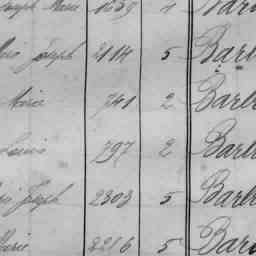 Joseph Marie 1639 4 Barb
Joseph 2114 5 Barb
Marie 741 2 Barb
Louis 797 2 Barb
Joseph 2303 5 Barb
Marie 2216 5 Barb